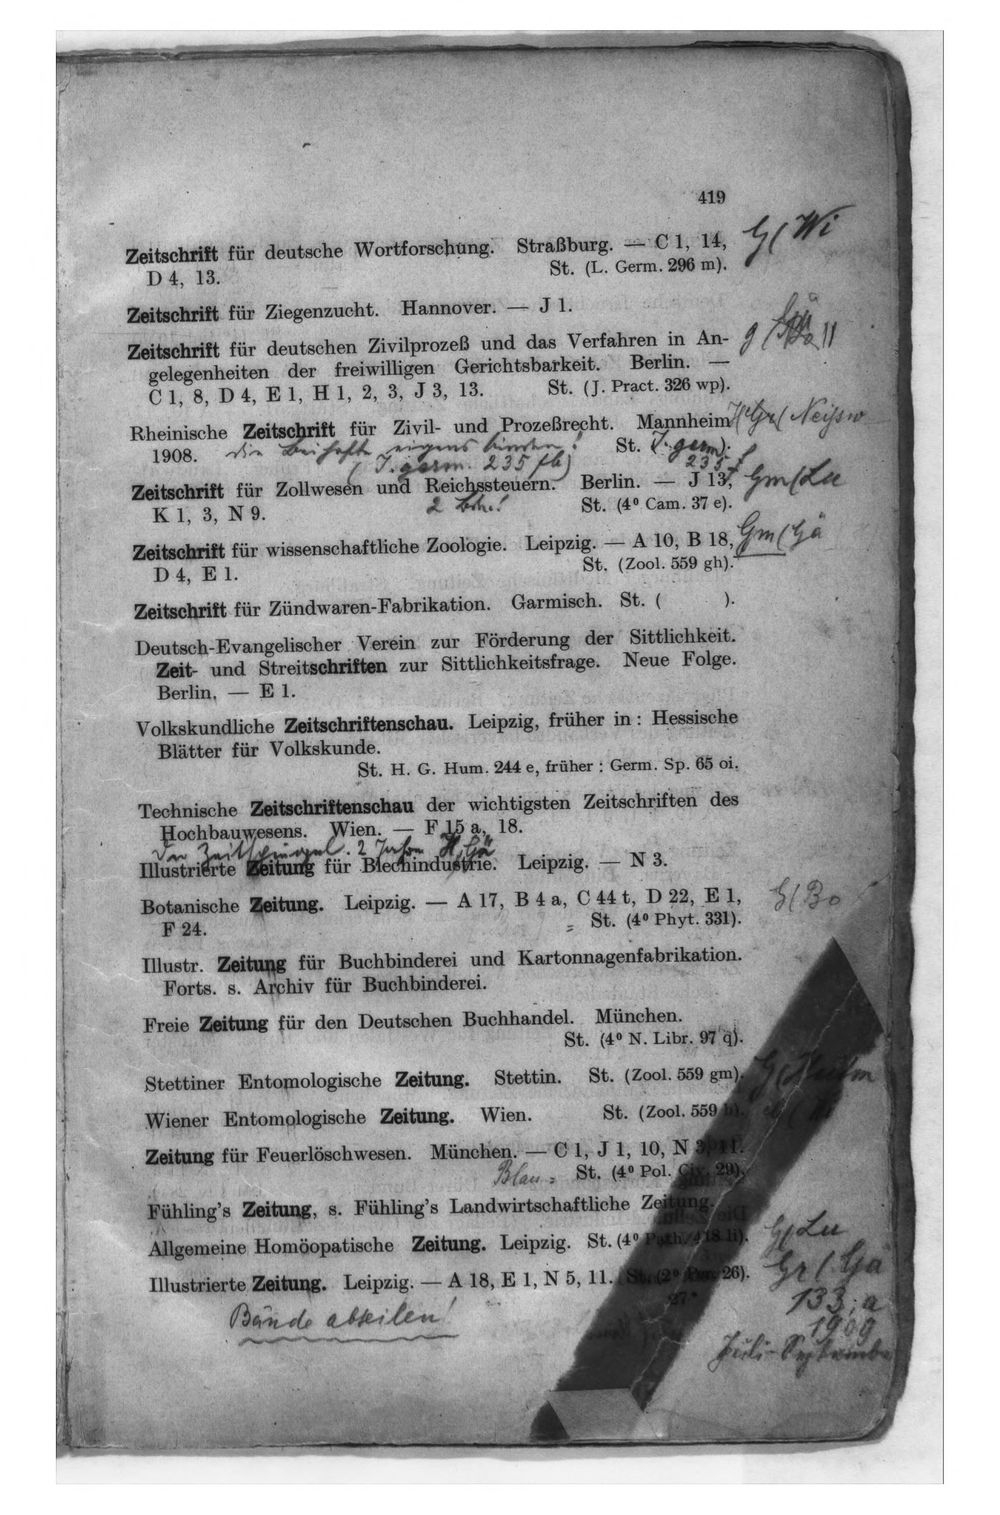 419
Zeitschrift für deutsche Wortforschung. Straßburg. — C 1, 14,
G/Wi
D 4, 13. St. (L. Germ. 296 m).
Zeitschrift für Ziegenzucht. Hannover. — J 1.
Zeitschrift für deutschen Zivilprozeß und das Verfahren in An-
gelegenheiten der freiwilligen Gerichtsbarkeit. Berlin. —
C 1, 8, D 4, E 1, H 1, 2, 3, J 3, 13. St. (J. Pract. 326 wp).
Rheinische Zeitschrift für Zivil- und Prozeßrecht. Mannheim
1908. die Beihefte eigens binden! St. (J. germ).
(J. germ. 235 fb) 235 f
Zeitschrift für Zollwesen und Reichssteuern. Berlin. — J 13,
Gm/Lu
K 1, 3, N 9. 2 Bde.! St. (4⁰ Cam. 37 e).
Zeitschrift für wissenschaftliche Zoologie. Leipzig. — A 10, B 18,
Gm/Gä
D 4, E 1. St. (Zool. 559 gh).
Zeitschrift für Zündwaren-Fabrikation. Garmisch. St. ( ).
Deutsch-Evangelischer Verein zur Förderung der Sittlichkeit.
Zeit- und Streitschriften zur Sittlichkeitsfrage. Neue Folge.
Berlin. — E 1.
Volkskundliche Zeitschriftenschau. Leipzig, früher in: Hessische
Blätter für Volkskunde.
St. H. G. Hum. 244 e, früher: Germ. Sp. 65 oi.
Technische Zeitschriftenschau der wichtigsten Zeitschriften des
Hochbauwesens. Wien. — F 15 a, 18.
Der Zeitspiegel. 2 H/Gä
Illustrierte Zeitung für Blechindustrie. Leipzig. — N 3.
Botanische Zeitung. Leipzig. — A 17, B 4 a, C 44 t, D 22, E 1,
G/Bo
F 24. St. (4⁰ Phyt. 331).
Illustr. Zeitung für Buchbinderei und Kartonnagenfabrikation.
Forts. s. Archiv für Buchbinderei.
Freie Zeitung für den Deutschen Buchhandel. München.
St. (4⁰ N. Libr. 97 q).
Stettiner Entomologische Zeitung. Stettin. St. (Zool. 559 gm).
Wiener Entomologische Zeitung. Wien. St. (Zool. 559 h).
Zeitung für Feuerlöschwesen. München. — C 1, J 1, 10, N 3, 11.
Blau = St. (4⁰ Pol. Civ. 29).
Fühling's Zeitung, s. Fühling's Landwirtschaftliche Zeitung.
Allgemeine Homöopathische Zeitung. Leipzig. St. (4⁰ Path. 418 li).
G/Lu
Illustrierte Zeitung. Leipzig. — A 18, E 1, N 5, 11. St. (2⁰ Per. 26).
Gr/Gä
27
133, a
Bände abteilen!
1909
Juli-September